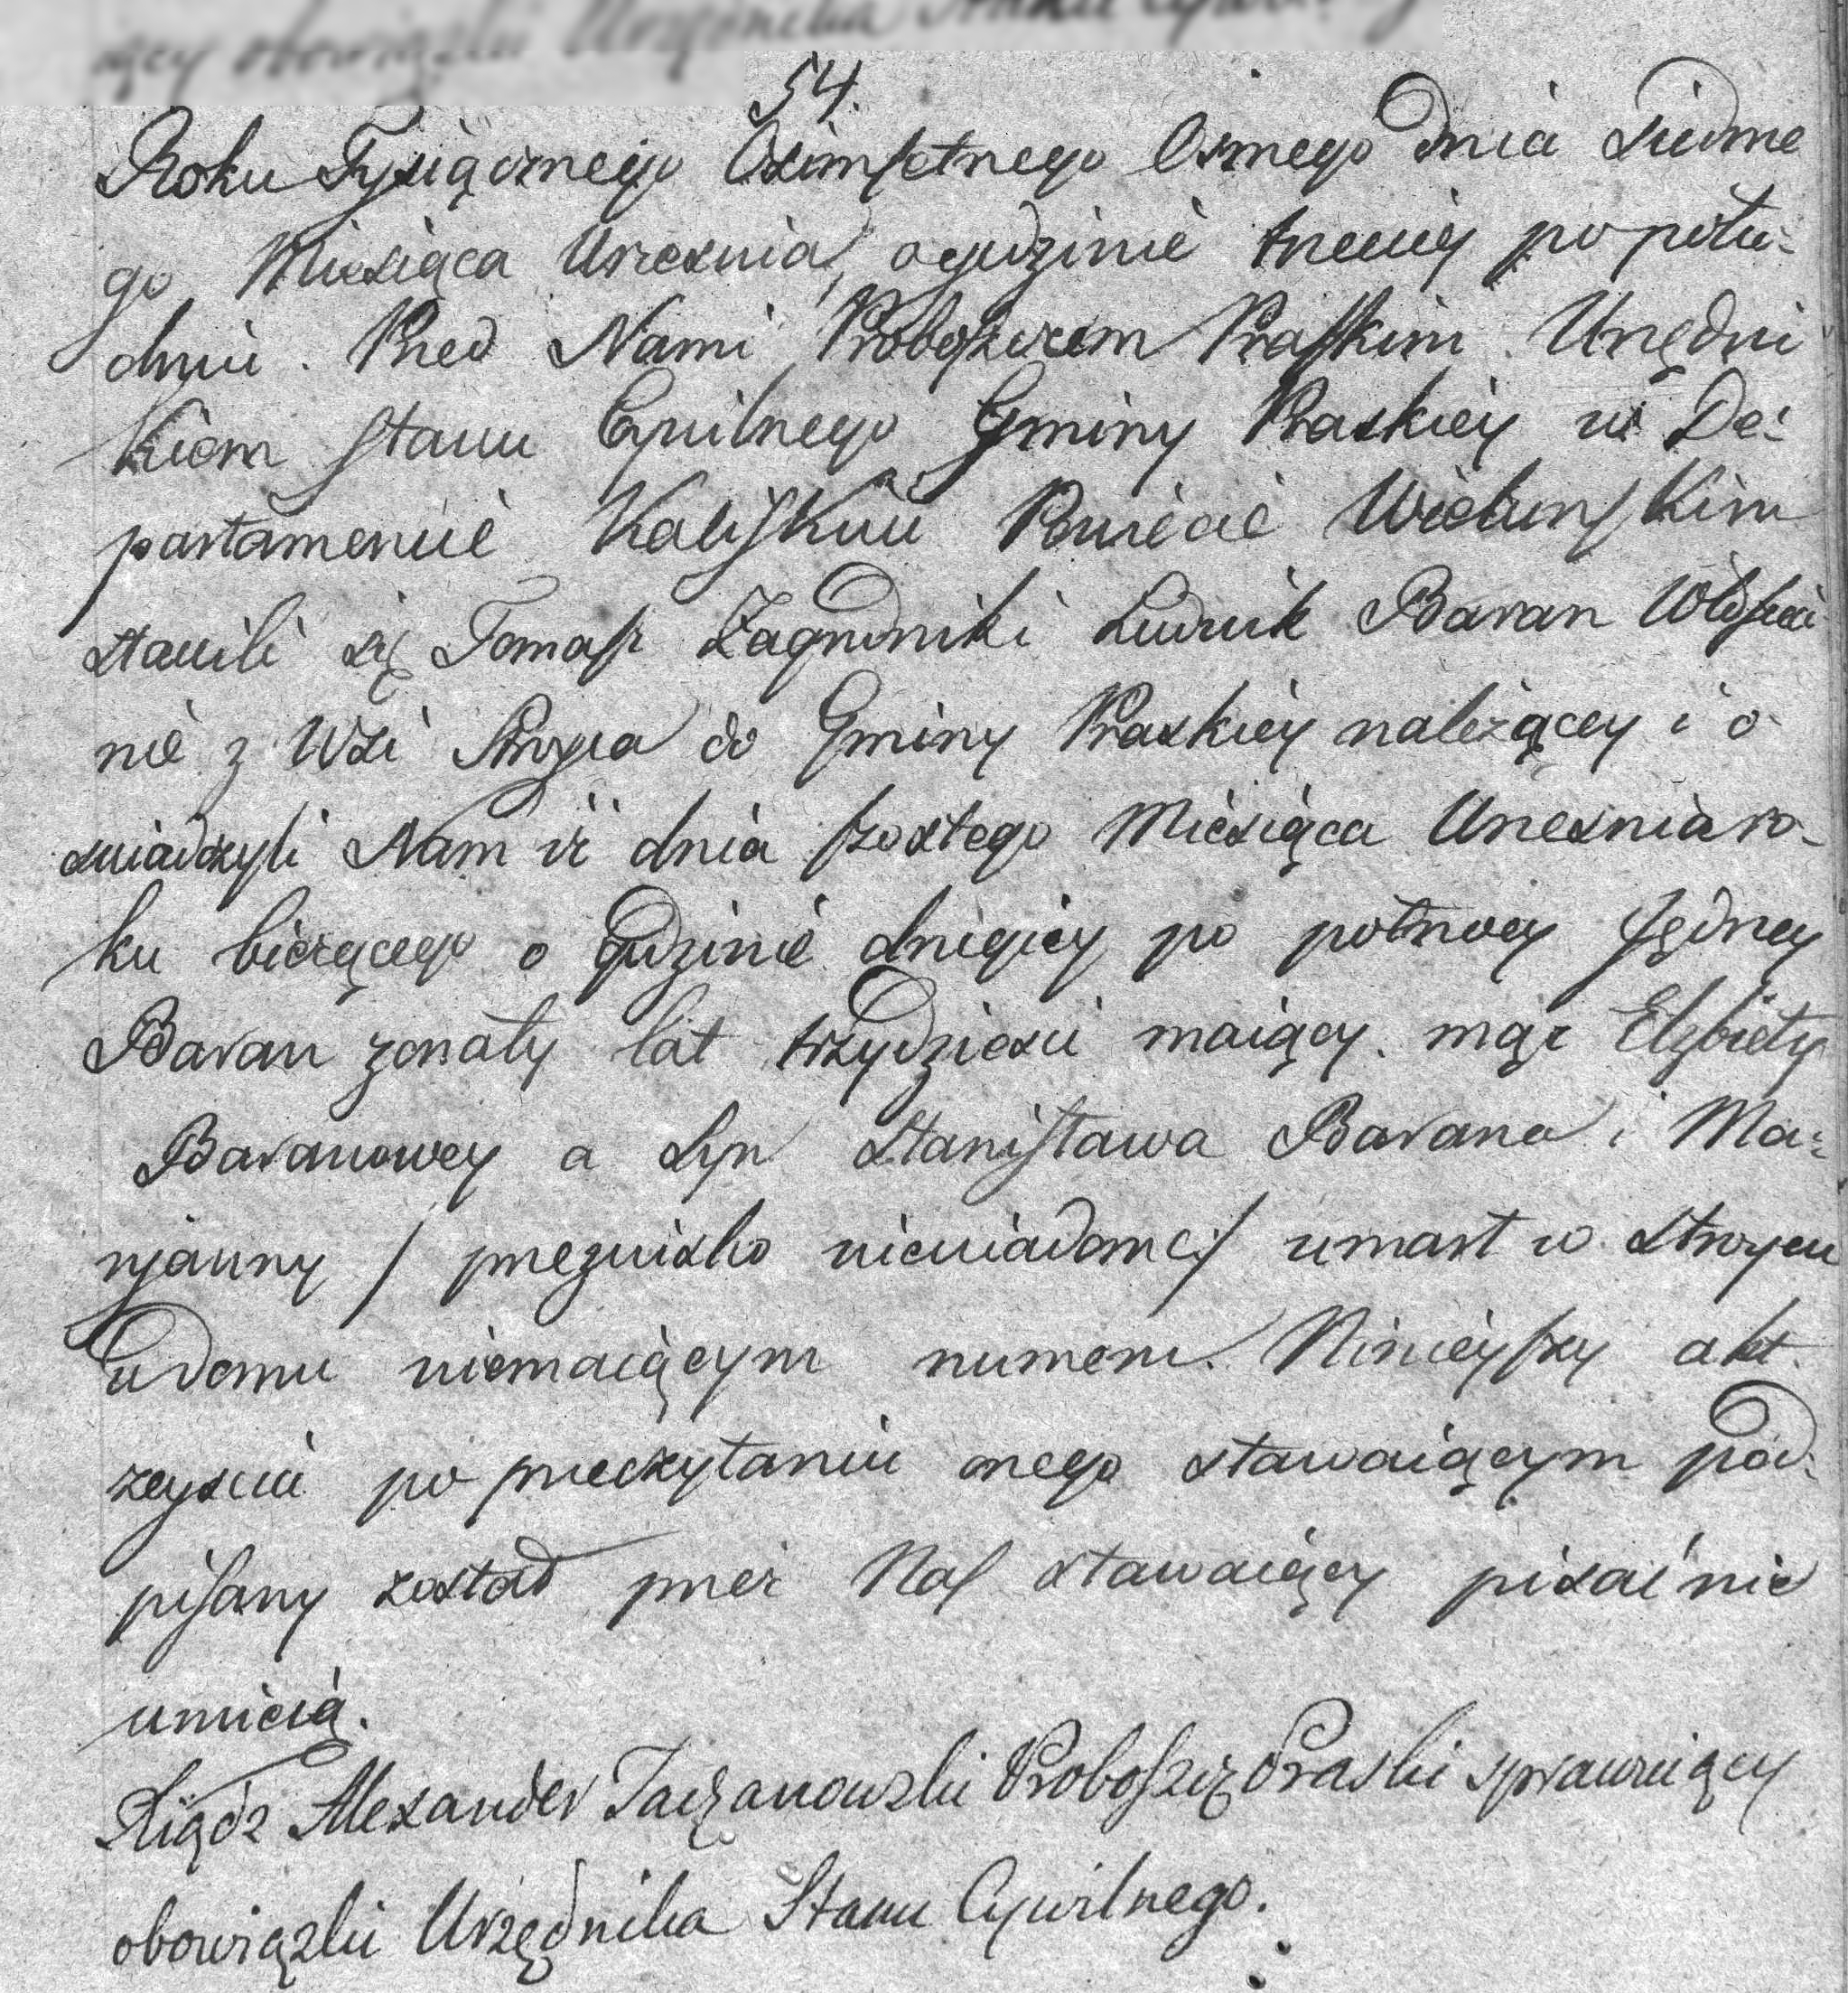 54.
Roku Tysiącznego Osimsetnego Osmego dnia siudme
go Miesiąca Wrzesnia, ogudzinie trzeciej po połu-
dniu. Przed Nami Proboszczem Praskim Urzędni
kiem stanu Cywilnego Gminy Praskiey w De-
partamencie Kaliskim Powiecie Wielunskim
stawili się Tomasz Zagrudniki Ludwik Baran Włoscia
nie z Wsi Stroyca do Gminy Praskiey należącey i o-
swiadczyli Nam iż dnia szostego Miesiąca Wrzesnia ro-
ku bieżącego o gudzinie drugiey po połnocy Jędrzey
Baran zonaty lat trzydziesci maiący. mąż Elzbiety
Baranowey a Syn Stanisława Barana i Ma-
ryanny / przezwisko niewiadome / umarł w Stroycu
w domu niemaiącym numeru. Ninieyszy akt
zeyscia po przeczytaniu onego stawaiącym pod-
pisany został przez Nas stawaiący pisać nie
umieią.
Xiądz Alexander Taczanowski Proboszcz Praski sprawuiący
obowiązki Urzędnika Stanu Cywilnego.